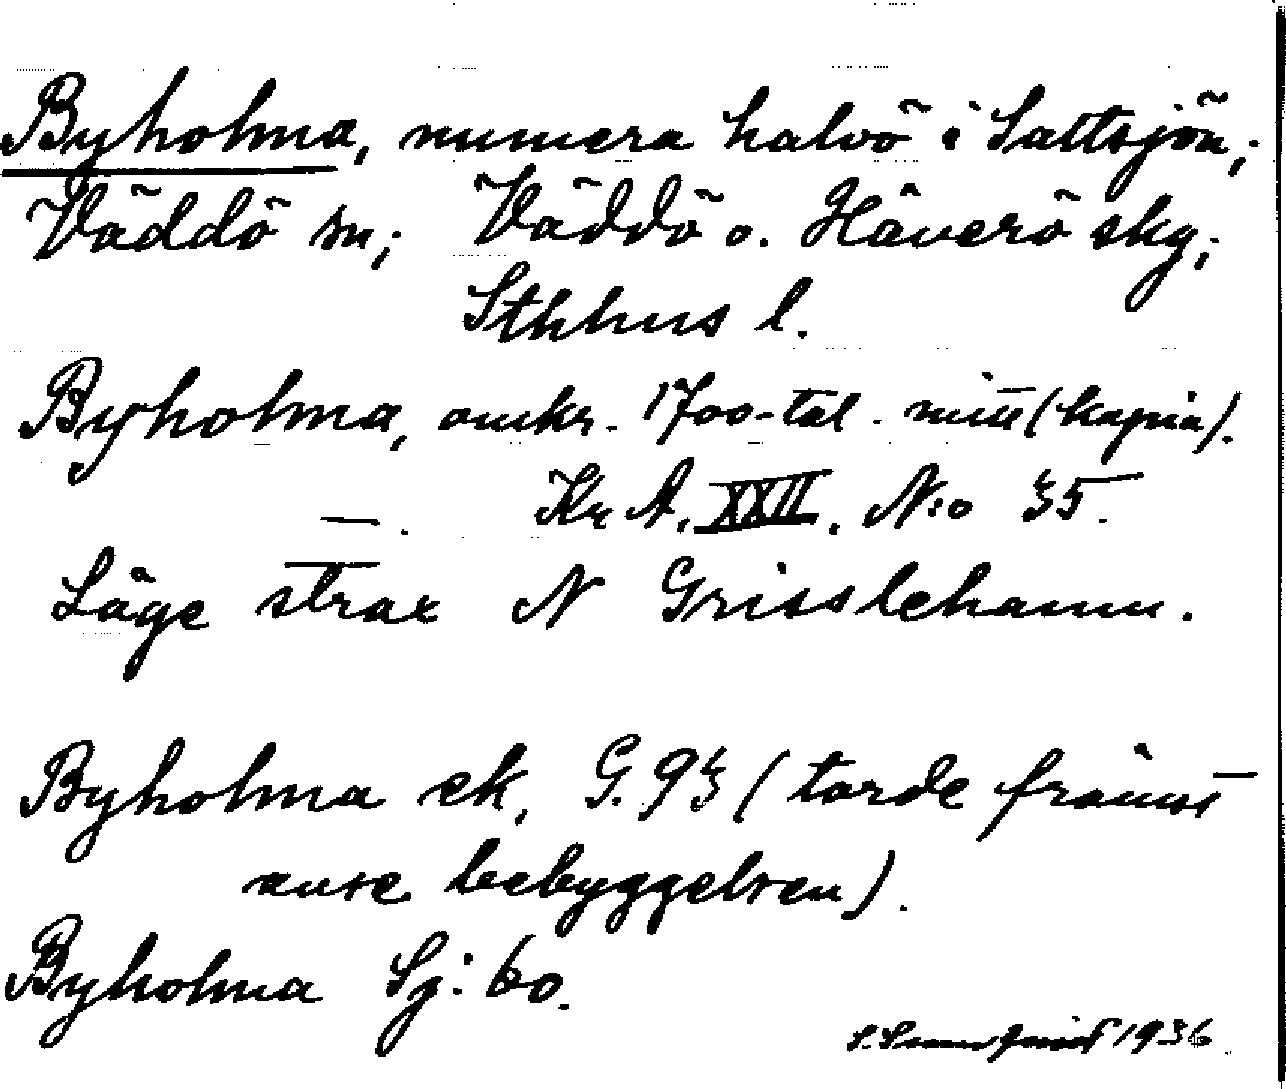 Byholma, numera halvö i Saltsjön;
Väddö sn; Väddö o. Häverö skg;
Sthlms l.
Byholma, omkr. 1700-tal. mitt (kopia).
—. Kr A, XXII, N:o 35.
Läge strax N Grisslehamn.
Byholma ek, G. 93 (torde främst
avse bebyggelsen).
Byholma Sj: 60.
1936